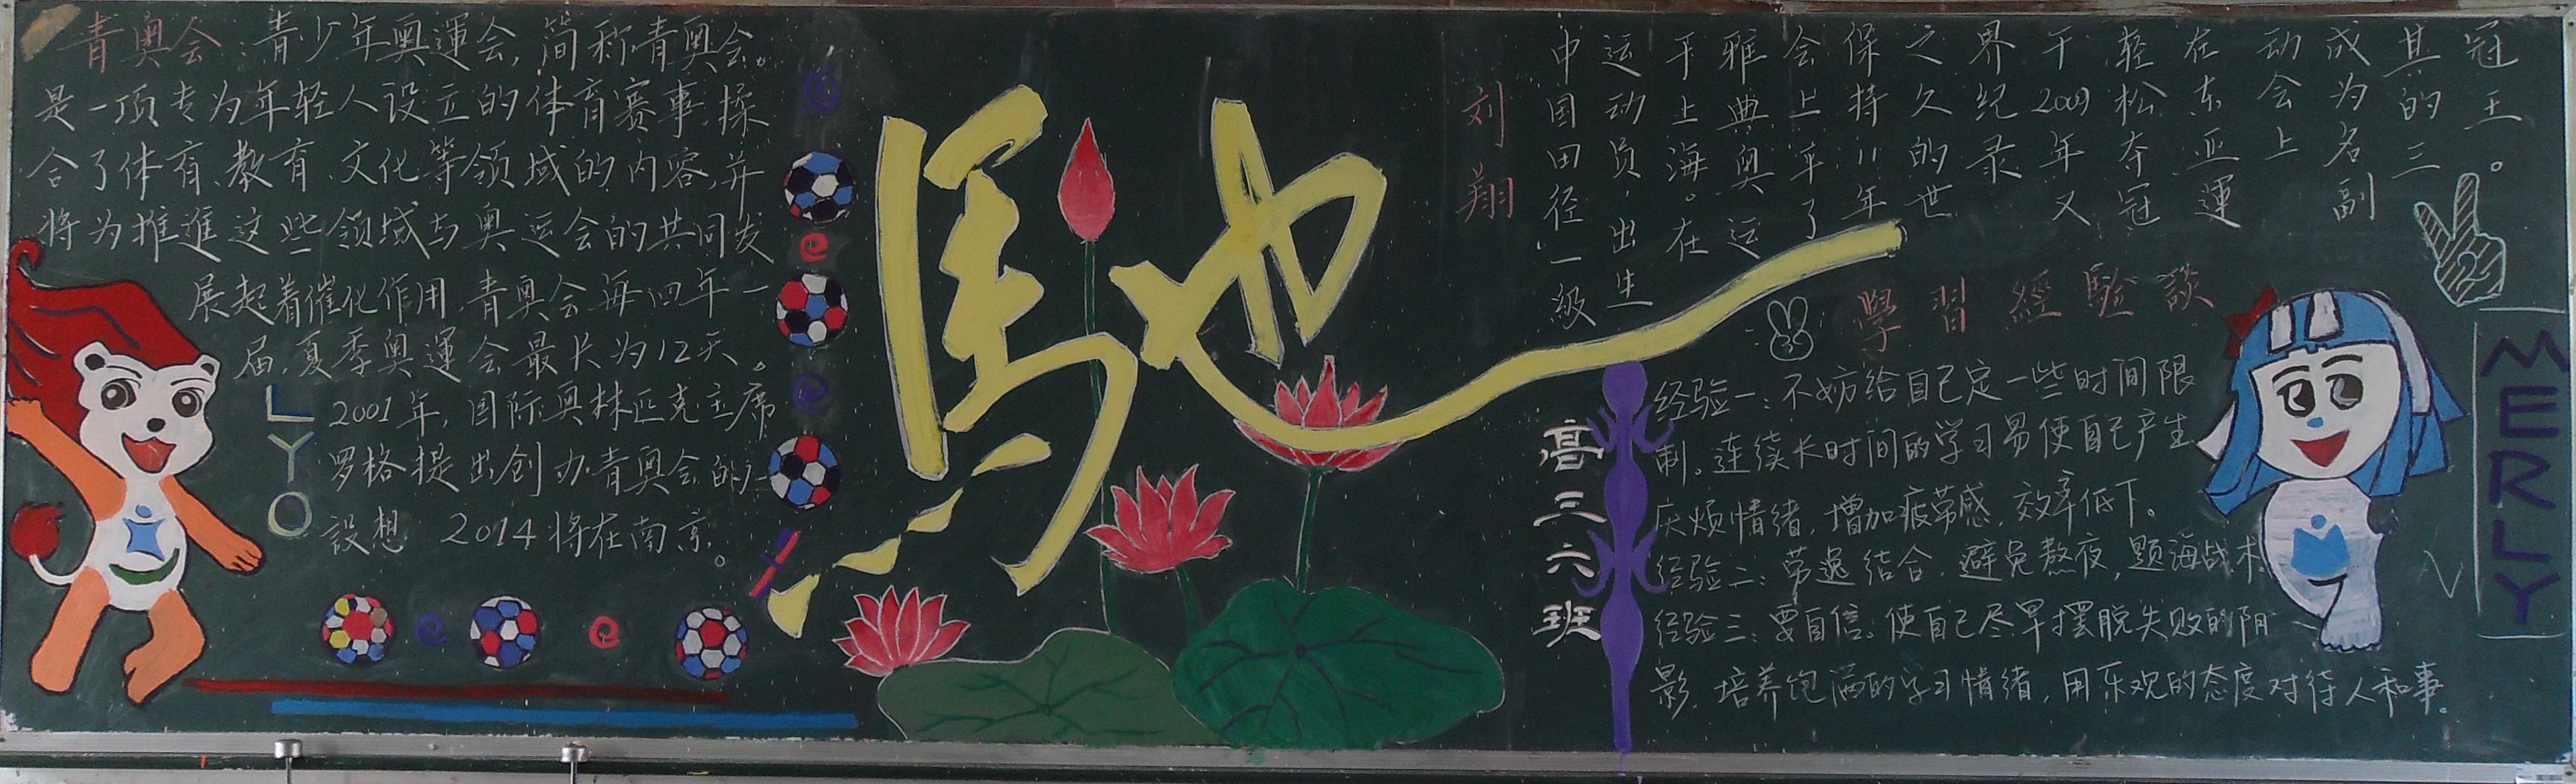 青奥会:青少年奥運会,简称青奥会。
是一项专为年轻人设立的体育赛事,揉
合了体育、教育、文化等领域的内容,并
将为推進这些领域与奥运会的共同发
展起着催化作用,青奥会每四年一
届,夏季奥運会最长为12天。
2001年,国际奥林匹克主席
罗格提出创办青奥会的
設想 2014将在南京。
LYO
e
e
e
e
馳
刘翔
中国田径一級
运动员,出生
于上海。在
雅典奥运
会上平了
保持11年
之久的世
界纪录
于2009年又
轻松夺冠
在东亚運
动会上
成为名副
其的三
冠王。
高三六班
學習經驗談
经验一:不妨给自己定一些时间限
制。连续长时间的学习易使自己产生
厌烦情绪,增加疲劳感,效率低下。
经验二:劳逸结合,避免熬夜,题海战术
经验三:要自信。使自己尽早摆脱失败的阴
影,培养饱满的学习情绪,用乐观的态度对待人和事。
MERLY